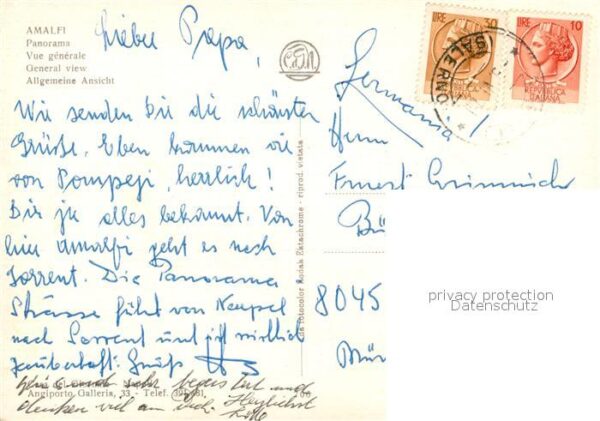 AMALFI
Panorama
Vue générale
General view
Allgemeine Ansicht
Lieber Papa,
Wir senden Dir die schönsten
Grüße. Eben kommen wir
von Pompeji, herrlich!
Dir ja alles bekannt. Von
hier Amalfi geht es nach
Sorrent. Die Panorama
Strasse führt von Neapel
nach Sorrent und ist wirklich
zauberhaft. Gruß
sehr begeistert und
denken viel an Dich. Herzlichst
Angiporto Galleria, 33 - Telef.
da fotocolor Kodak Ektachrome - riprod. vietata
30 LIRE
LIRE 10
REPUBBLICA
ITALIANA
SALERNO
Germania!
Herrn
Ernest
8045
privacy protection
Datenschutz